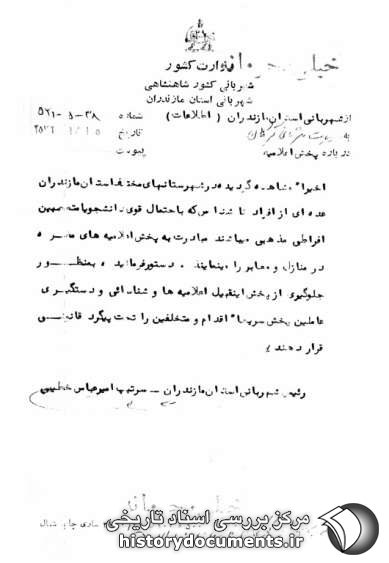 خیلی محرمانه
وزارت کشور
شهربانی کشور شاهنشاهی
شهربانی استان مازندران
از شهربانی استان مازندران (اطلاعات) شماره ۳۸-۵-۵۲۱
به تاریخ
درباره پخش اعلامیه پیوست
اخیراً مشاهده گردیده در شهرستانهای مختلف استان مازندران
عده ای از افراد ناشناس که باحتمال قوی دانشجویان متعصبین
افراطی مذهبی میباشند مبادرت به پخش اعلامیه های مضره
در منازل و معابر را مینمایند . دستور فرمائید بمنظور
جلوگیری از پخش اینقبیل اعلامیه ها و شناسائی و دستگیری
عاملین پخش سریعاً اقدام و متخلفین را تحت پیگرد قانونی
قرار دهند
رئیس شهربانی استان مازندران - سرتیپ امیرعباس خطیبی
خیلی محرمانه
ساری چاپ شمال
مرکز بررسی اسناد تاریخی
historydocuments.ir